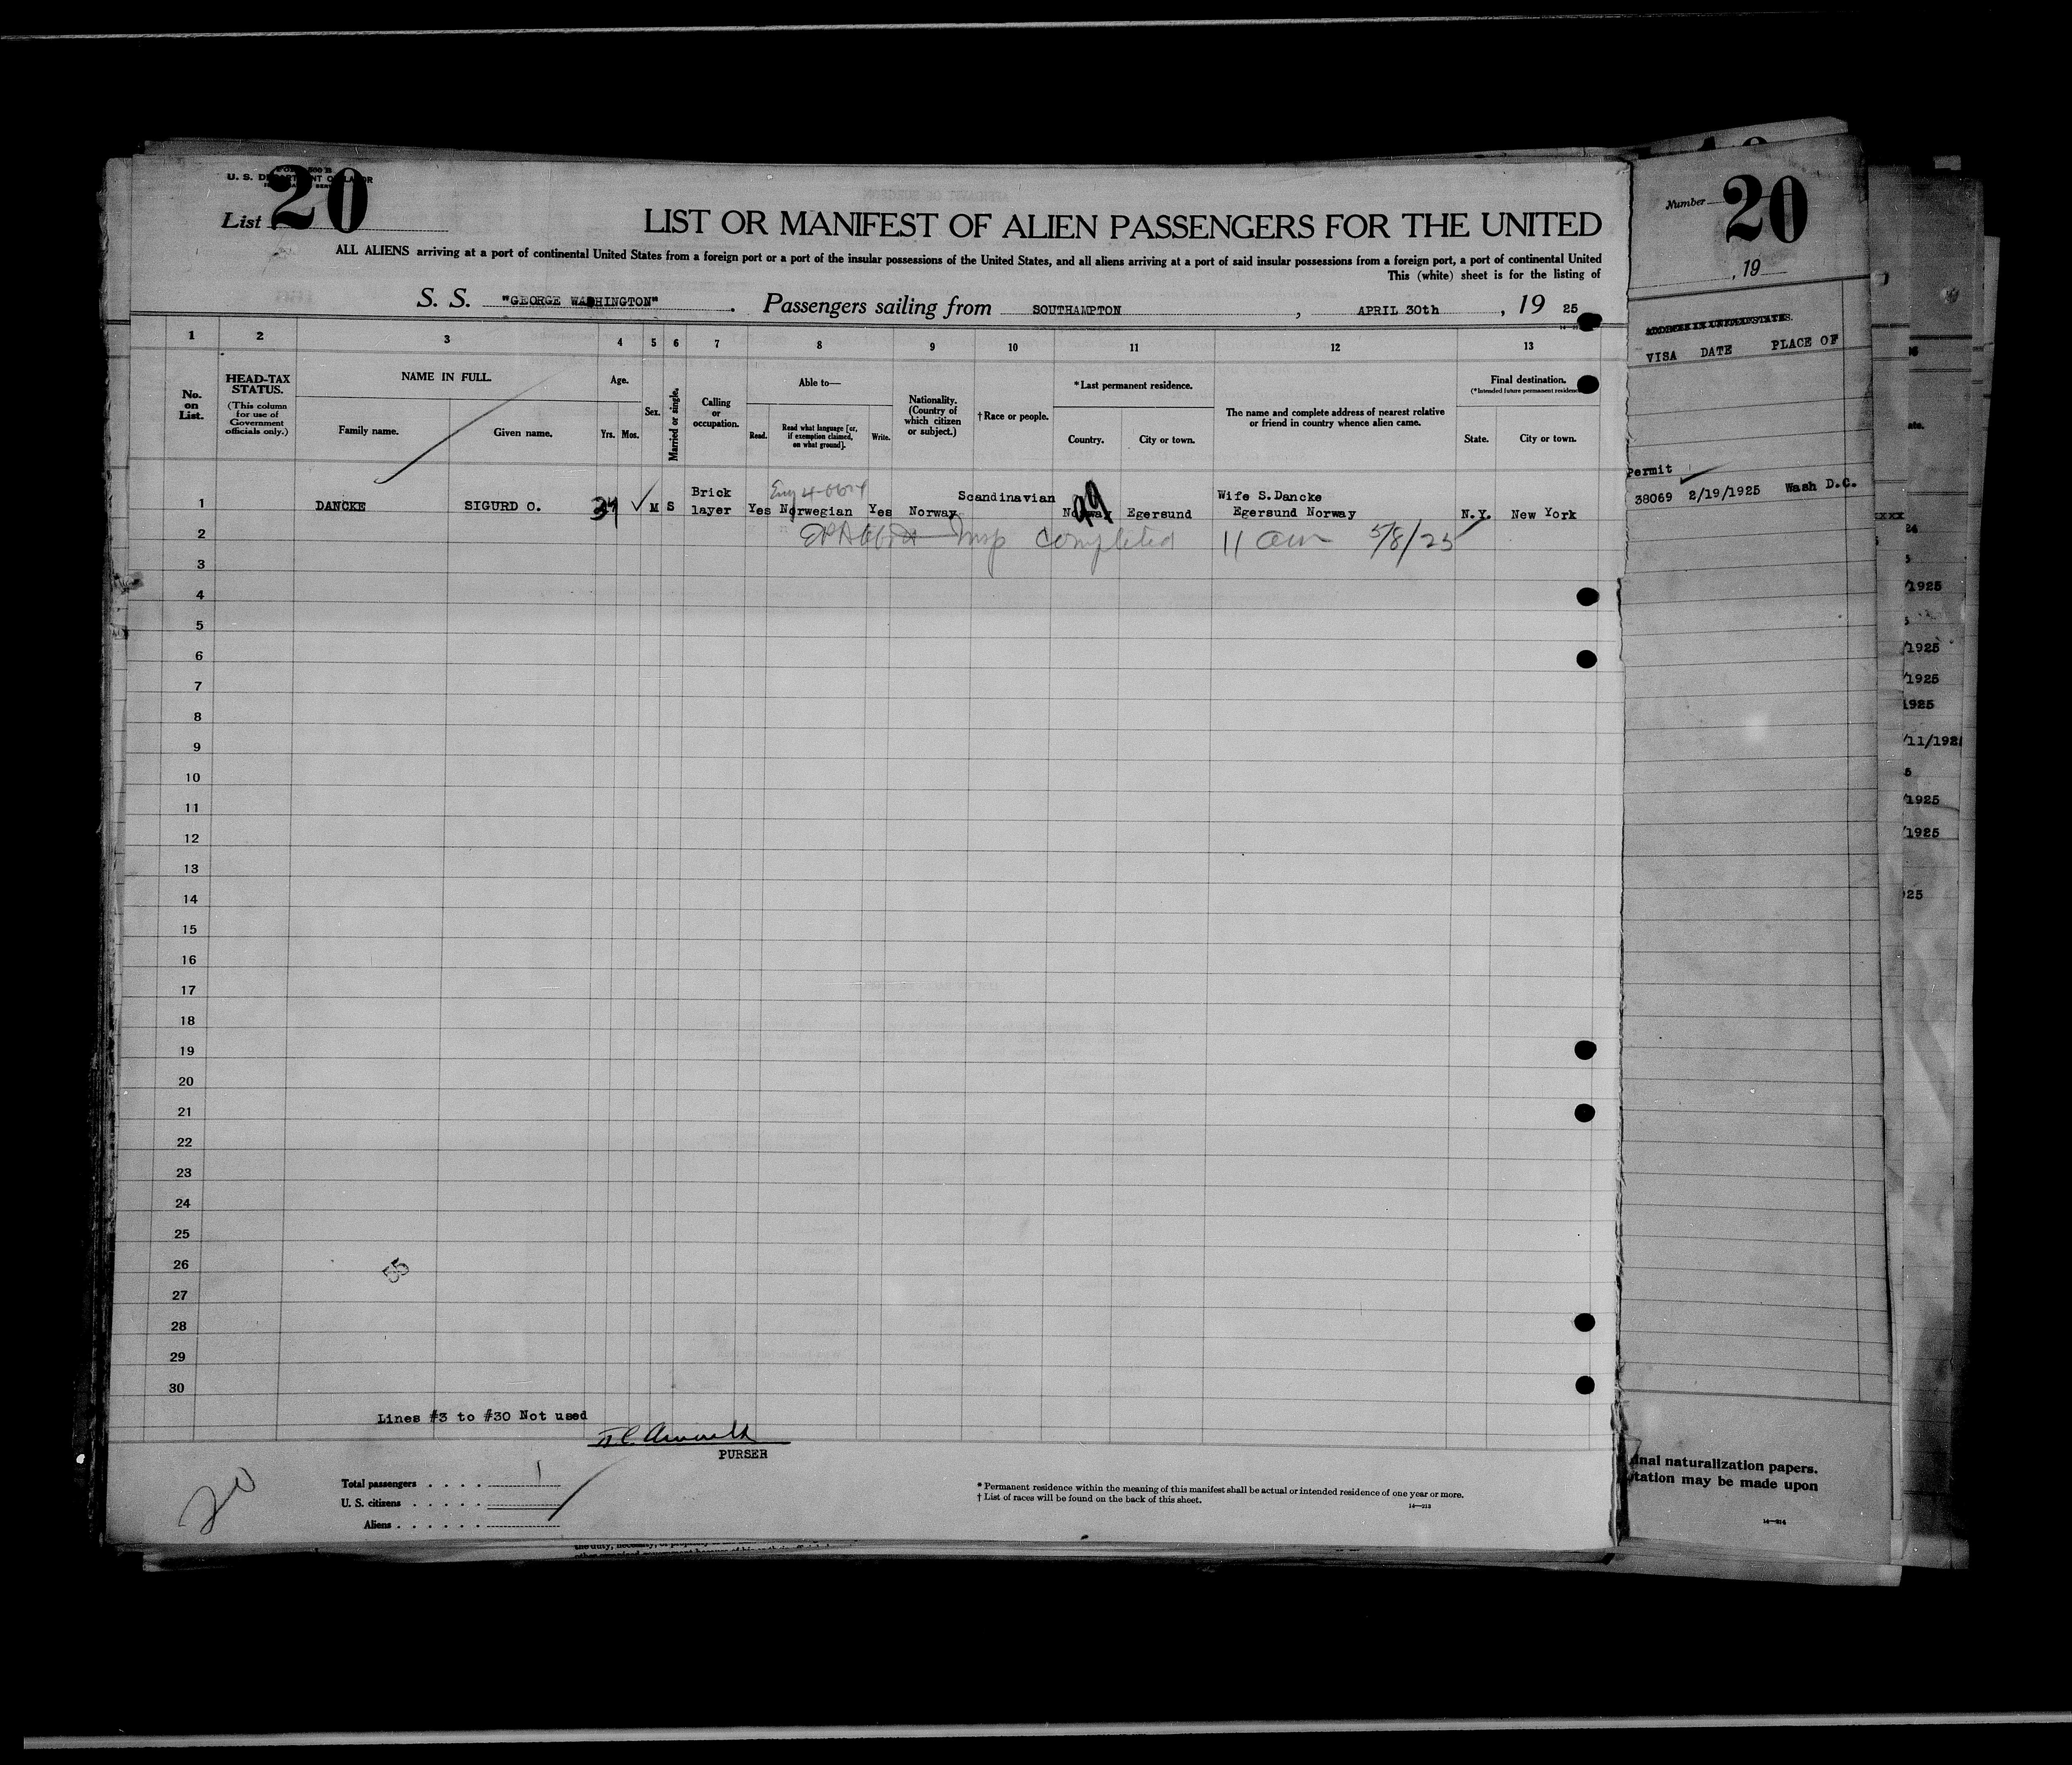 U. S. DEPARTMENT OF LABOR
List 20
LIST OR MANIFEST OF ALIEN PASSENGERS FOR THE UNITED
ALL ALIENS arriving at a port of continental United States from a foreign port or a port of the insular possessions of the United States, and all aliens arriving at a port of said insular possessions from a foreign port, a port of continental United
This (white) sheet is for the listing of
S. S. "GEORGE WASHINGTON". Passengers sailing from SOUTHAMPTON, APRIL 30th, 19 25
1 2 3 4 5 6 7 8 9 10 11 12 13
No. on List.
HEAD-TAX STATUS.
(This column for use of Government officials only.)
NAME IN FULL.
Family name. Given name.
Age.
Yrs. Mos.
Sex.
Married or single.
Calling or occupation.
Able to—
Read. Read what language [or, if exemption claimed, on what ground]. Write.
Nationality. (Country of which citizen or subject.)
†Race or people.
*Last permanent residence.
Country. City or town.
The name and complete address of nearest relative or friend in country whence alien came.
Final destination.
(*Intended future permanent residence
State. City or town.
1 DANCKE SIGURD O. M S Brick layer Yes Norwegian Yes Norway Scandinavian Norway Egersund Wife S.Dancke Egersund Norway N.Y. New York
2 Insp completed 11 am 5/8/25
3
4
5
6
7
8
9
10
11
12
13
14
15
16
17
18
19
20
21
22
23
24
25
26
27
28
29
30
55
Lines #3 to #30 Not used
PURSER
20
Total passengers . . . . 1
U. S. citizens . . . . .
Aliens . . . . . .
* Permanent residence within the meaning of this manifest shall be actual or intended residence of one year or more.
† List of races will be found on the back of this sheet.
14—213
Number 20
, 19
VISA DATE PLACE OF
Permit
38069 2/19/1925 Wash D.C.
/1925
/1925
/1925
1925
/11/192
/1925
/1925
25
naturalization papers.
may be made upon
14—214